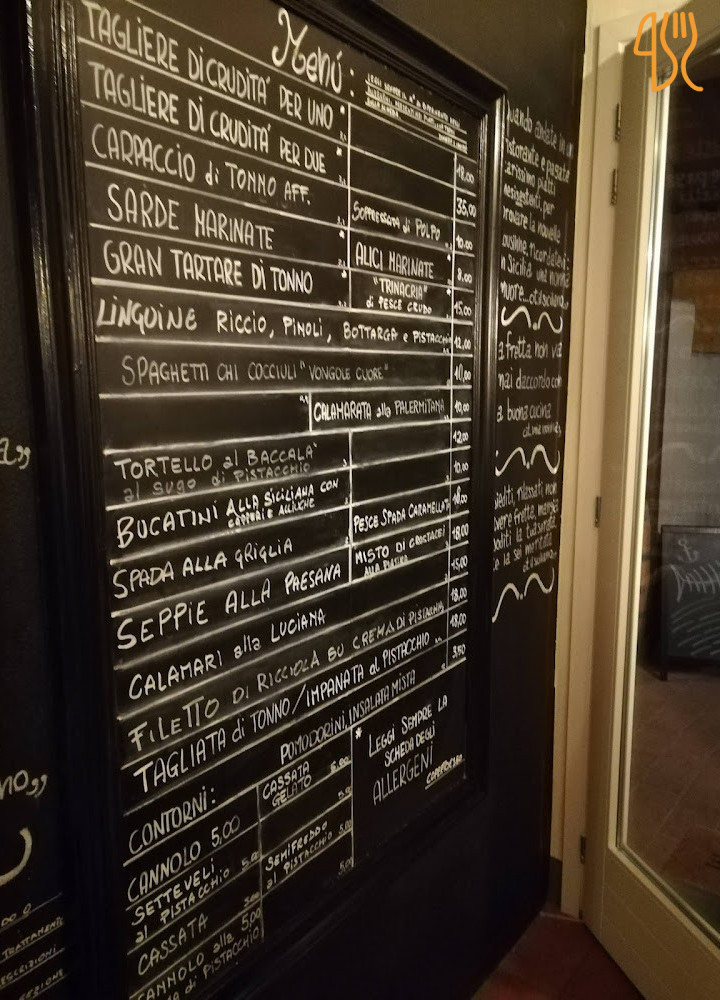 Menú:
TAGLIERE DI CRUDITA' PER UNO * 18,00
TAGLIERE DI CRUDITA' PER DUE * 35,00
CARPACCIO di TONNO AFF. SOPPRESSATA di POLPO 10,00
SARDE MARINATE ALICI MARINATE 8,00
GRAN TARTARE DI TONNO "TRINACRIA"
di PESCE CRUDO 15,00
LINGUINE RICCIO, PINOLI, BOTTARGA e PISTACCHIO 12,00
SPAGHETTI CHI COCCIULI "VONGOLE CUORE" 10,00
CALAMARATA alla PALERMITANA 10,00
12,00
TORTELLO al BACCALA'
al SUGO di PISTACCHIO 10,00
BUCATINI ALLA SICILIANA CON
CAPPERI e ACCIUGHE PESCE SPADA CARAMELLAT
SPADA ALLA GRIGLIA MISTO DI CROSTACEI
ALLA PIASTRA 18,00
SEPPIE ALLA PAESANA 15,00
CALAMARI alla LUCIANA 18,00
FILETTO DI RICCIOLA SU CREMA DI PISTACCHIO 18,00
TAGLIATA di TONNO/IMPANATA al PISTACCHIO 3,50
CONTORNI: POMODORINI, INSALATA MISTA
CANNOLO 5,00 CASSATA
GELATO 5,00
SETTEVELI
al PISTACCHIO 5,00
CASSATA SEMIFREDDO
al PISTACCHIO 5,00
CANNOLO alla 5,00
di PISTACCHIO
* LEGGI SEMPRE LA
SCHEDA DEGLI
ALLERGENI
COPERTO
uando andate in un
ristorante e pagate
carissimo piatti
per
provare la nouvelle
cuisine, ricordatevi
n Sicilia una nonna
muore...
a fretta non va
mai daccordo con
a buona cucina
iediti, rilassati, non
vere fretta, mangia
oditi la tua serata
te la sei meritata
TRATTAMENTI